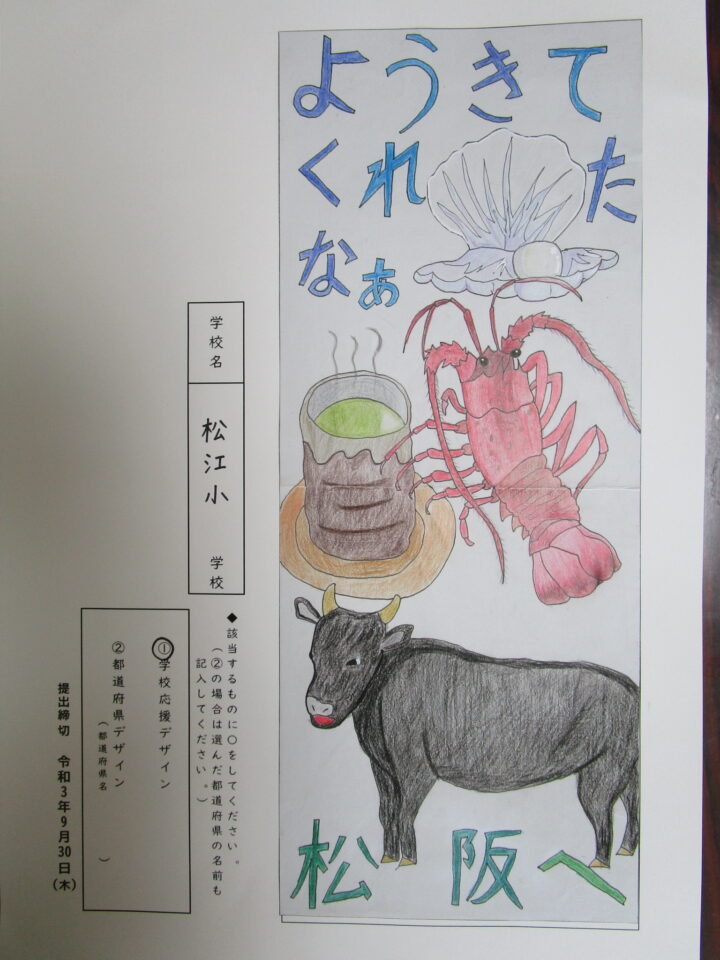 ようきて
くれた
なぁ
松阪へ
学校名
松江小 学校
◆該当するものに○をしてください。
(②の場合は選んだ都道府県の名前も
記入してください。)
①学校応援デザイン
②都道府県デザイン
(都道府県名 )
提出締切 令和3年9月30日(木)